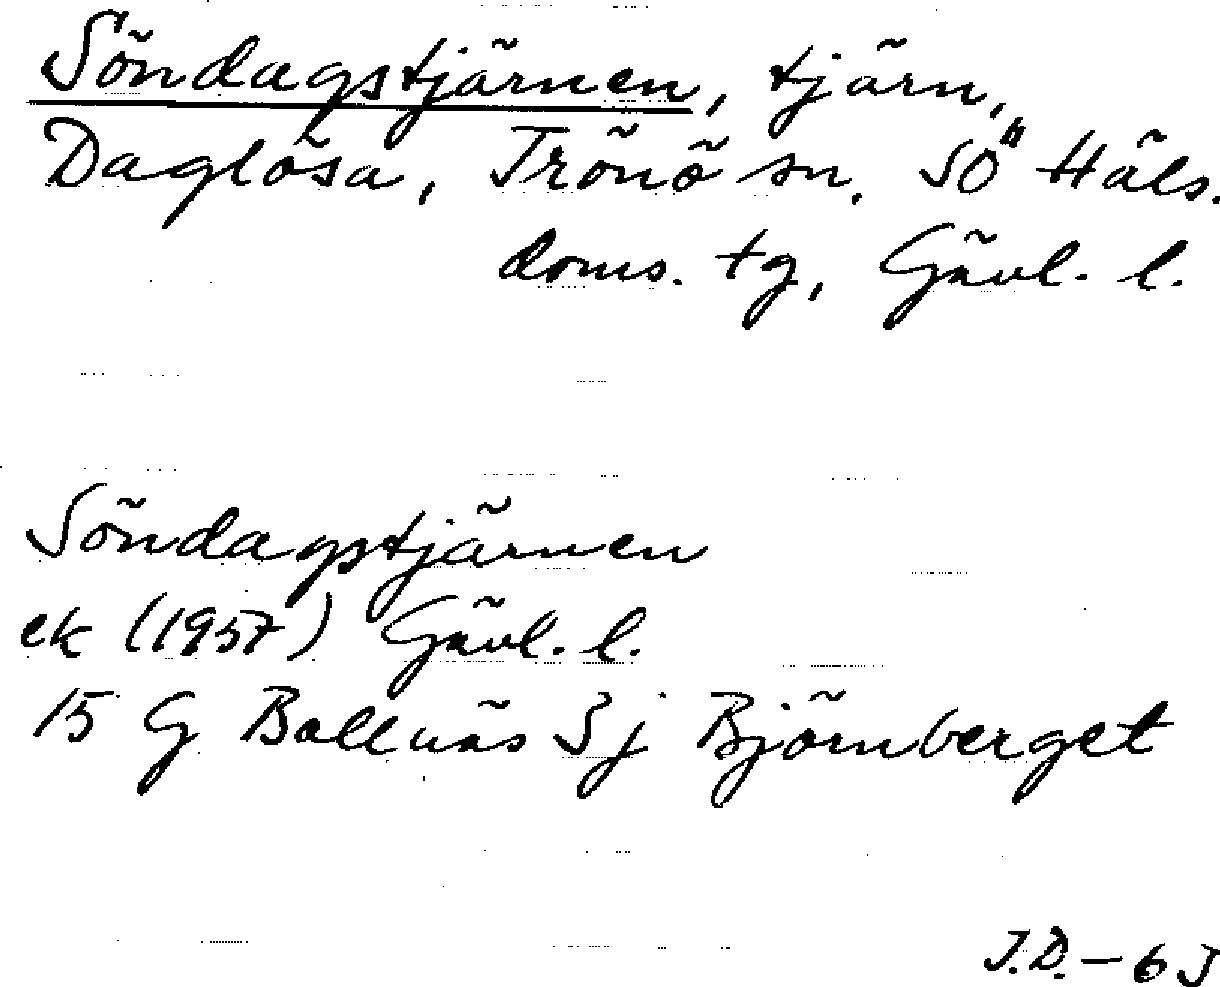 Söndagstjärnen, tjärn,
Daglösa, Trönö sn, SÖ Häls.
doms. tg, Gävl. l.
Söndagstjärnen
ek (1957) Gävl. l.
15 G Bollnäs Sj Björnberget
J.D. - 63